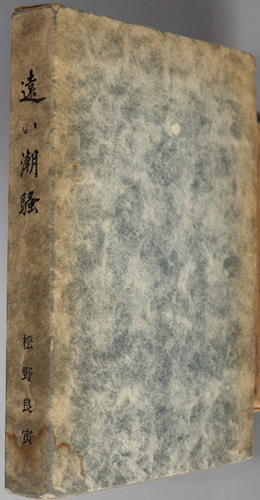 遠い潮騒
松野良寅